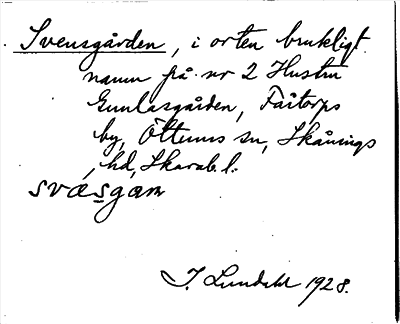 Svensgården, i orten brukligt
namn på nr 2 Hustru
Gunlasgården, Fåtorps
by, Öttums sn, Skånings
hd, Skarab. l.
svæsgaɷn
J. Lundahl 1928.